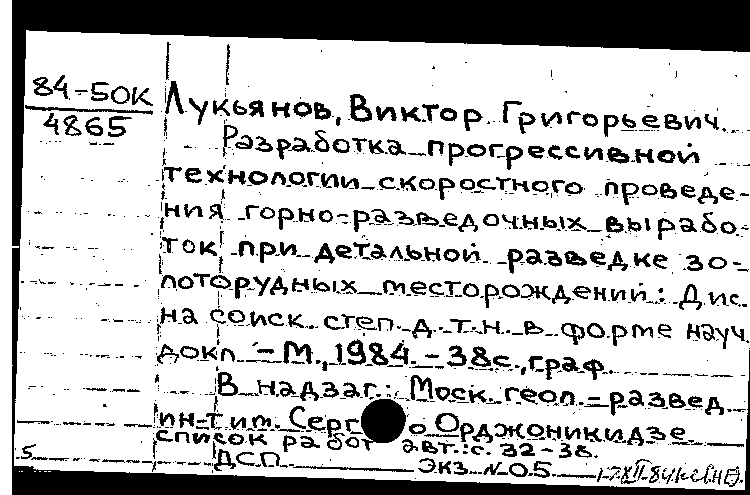 84-50К
4865
Лукьянов, Виктор Григорьевич.
Разработка прогрессивной
технологии скоростного проведе-
ния горно-разведочных вырабо-
ток при детальной разведке зо-
лоторудных месторождений: Дис.
на соиск. степ. д. т. н. в форме науч.
докл. - М., 1984. - 38с., граф.
В надзаг.: Моск. геол.-развед.
ин-т им. Серго Орджоникидзе.
список работ авт.: с. 32-38.
5 ДСП экз. N 05